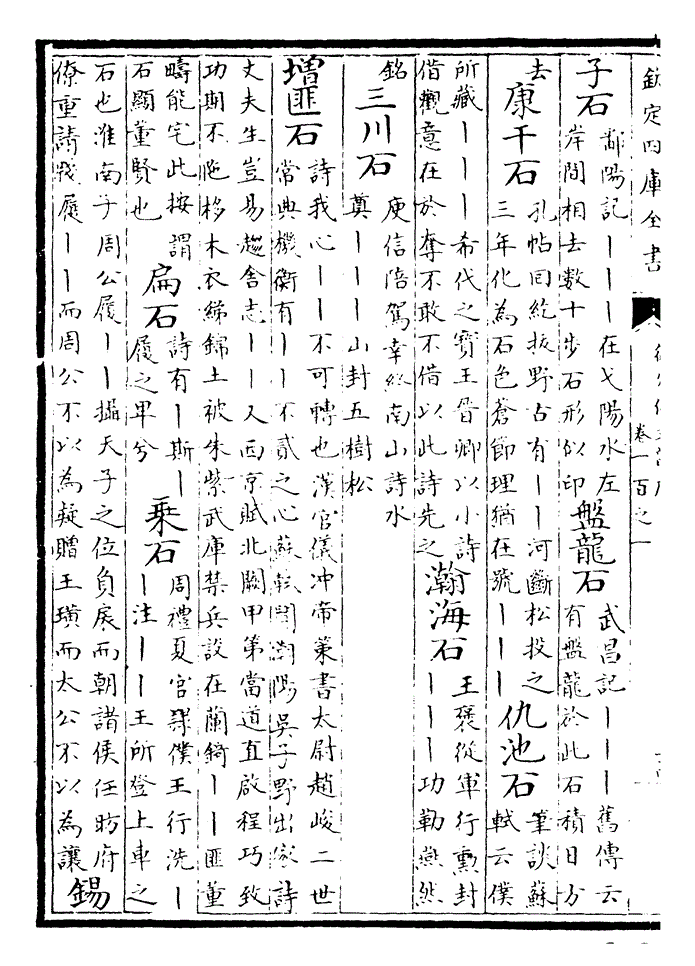 欽定四庫全書
卷一百之一
子石鄱陽記｜｜｜在弋陽水左
岸間相去數十步石形似印
盤龍石武昌記｜｜｜舊傳云
有盤龍於此石積日方
去
康干石孔帖回紇抜野古有｜｜河斷松投之
三年化為石色蒼節理猶在號｜｜｜
仇池石筆談蘇
軾云僕
所藏｜｜｜希代之寶王晉卿以小詩
借觀意在於奪不敢不借以此詩先之
瀚海石王褒從軍行勲封
｜｜｜功勒燕然
銘
三川石庾信陪駕幸終南山詩水
奠｜｜｜山封五樹松
增匪石詩我心｜｜不可轉也漢官儀冲帝策書太尉趙峻二世
常典機衡有｜｜不貳之心蘇軾聞潮陽吳子野出家詩
丈夫生豈易趨舍志｜｜又西京賦北闕甲第當道直啟程巧致
功期不陁栘木衣綈錦土被朱紫武庫禁兵設在蘭錡｜｜匪董
疇能宅此按謂
石顯董賢也
扁石詩有｜斯｜
履之卑兮
乗石周禮夏官隸僕王行洗｜
｜注｜｜王所登上車之
石也淮南子周公履｜｜攝天子之位負扆而朝諸侯任昉府
僚重請牋履｜｜而周公不以為疑贈玉璜而太公不以為讓
錫